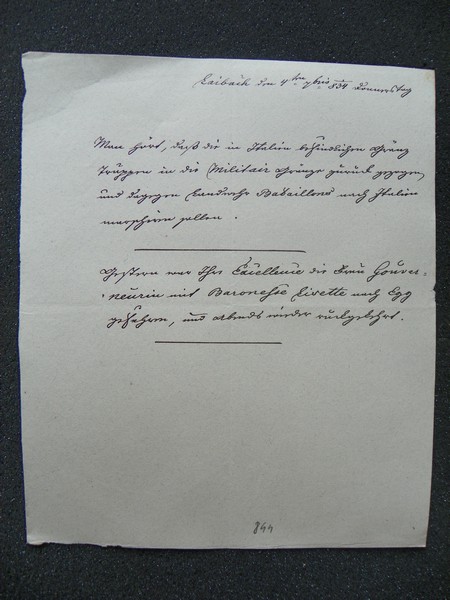 Laibach den 4ten 7bris 834 Donnerstag
Man hört, daß die in Italien befindlichen Gränz
Truppen in die Militair Gränze zurück gezogen,
und dagegen Landwehr Bataillons nach Italien
marschiren sollen.
Gestern war Ihre Excellence die Frau Gouver-
neurin mit Baronesse Livette nach Egg
gefahren, und Abends wieder rückgekehrt.
844